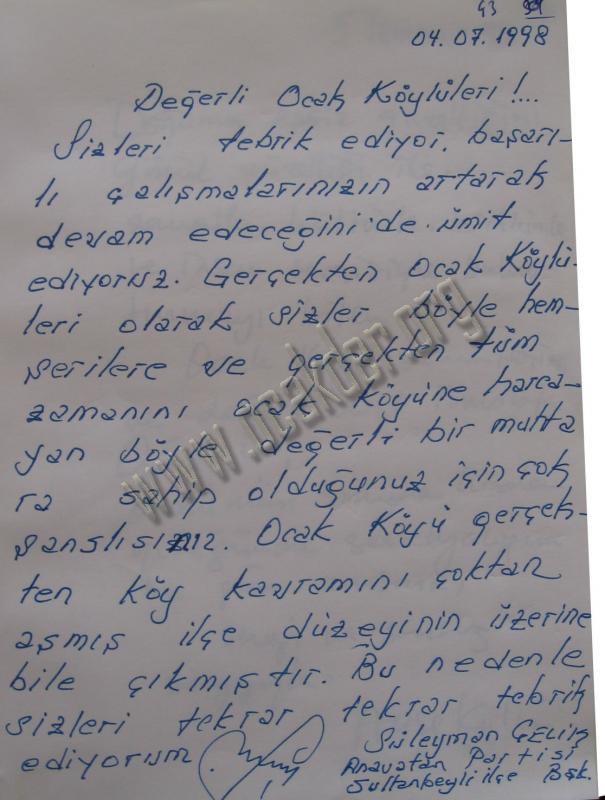 43 39
04.07.1998
Değerli Ocak Köylüleri!...
Sizleri tebrik ediyor, başarı-
lı çalışmalarınızın artarak
devam edeceğini de ümit
ediyoruz. Gerçekten Ocak Köylü-
leri olarak sizler böyle hem-
şerilere ve gerçekten tüm
zamanını ocak köyüne harca-
yan böyle değerli bir muhta
ra sahip olduğunuz için çok
şanslısınız. Ocak Köyü gerçek-
ten köy kavramını çoktan
aşmış ilçe düzeyinin üzerine
bile çıkmıştır. Bu nedenle
sizleri tekrar tekrar tebrik
ediyorum.
Süleyman ÇELİK
Anavatan Partisi
Sultanbeyli ilçe Bşk.
www.ocakder.org